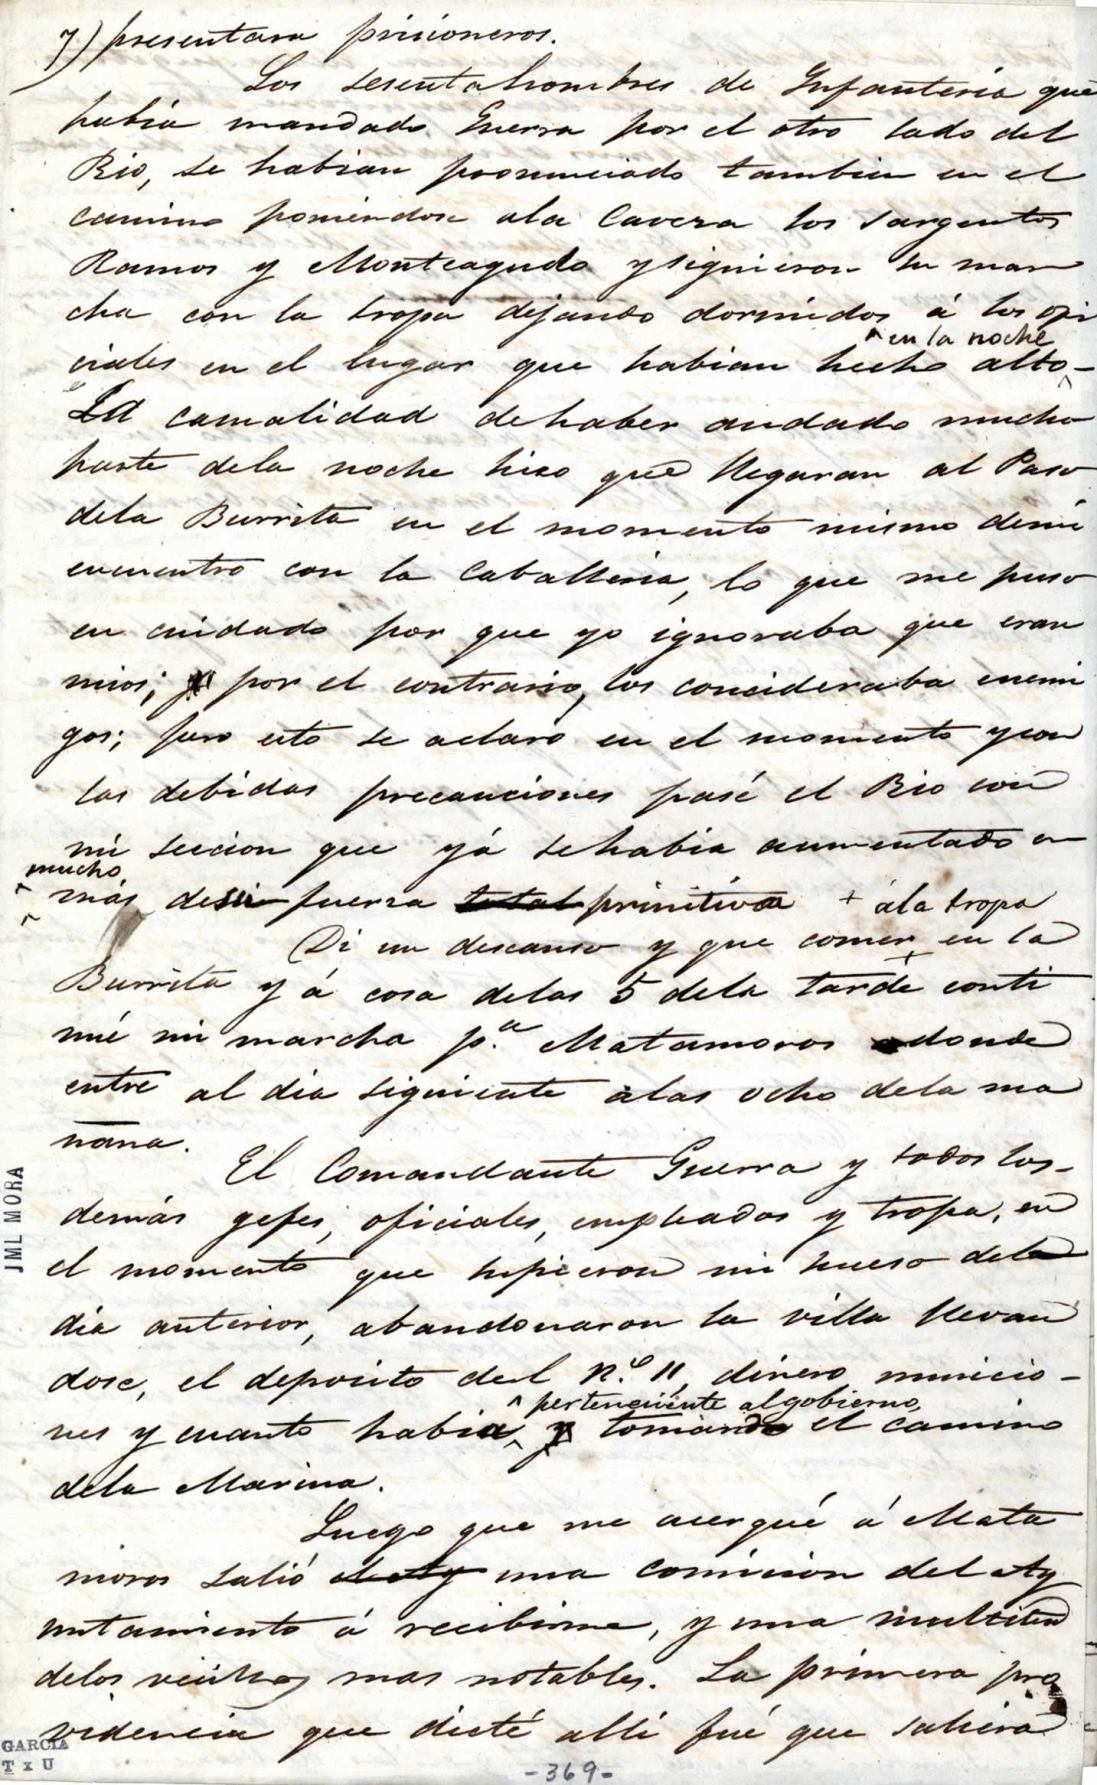 7) presentara pricioneros.
Los sesenta hombres de Ynfanteria que
habia mandado Guerra por el otro lado del
Rio, se habian pronunciado tambien en el
camino poniendose ala Cavesa los sargentos
Ramos y Monteagudo y siguieron su mar
cha con la tropa dejando dormidos á los ofi
^ en la noche
ciales en el lugar que habian hecho alto ^ -
La casualidad de haber andado mucha
parte dela noche hiso que llegaran al Paso
dela Burrita en el momento mismo demi
encuentro con la Caballeria, lo que me puso
en cuidado por que yo ignoraba que eran
mios; y por el contrario, los concideraba enemi
gos; pero esto se aclaro en el momento y con
las debidas precauciones pasé el Rio con
mi seccion que yá se habia aumentado en
mucho
más de mi fuerza total primitiva + á la tropa
Di un descanso y que comer + en la
Burrita y á cosa delas 5 dela tarde conti
nué mi marcha p.ª Matamoros adonde
entré al dia siguiente álas ocho dela ma
ñana.
El Comandante Guerra y todos los-
demás gefes, oficiales, empleados y tropa, en
el momento que supieron mi suceso del
dia anterior, abandonaron la villa llevan
dose, el deposito del n.º 11, dinero, municio-
^ perteneciente al gobierno,
nes y cuanto habia ^ y tomando el camino
dela Marina.
Luego que me acerqué á Mata
moros salió el Ay una comicion del Ay
untamiento á recibirme, y una multitud
delos vecinos mas notables. La primera pro
videncia que dicté alli fué que saliera
JML MORA
GARCIA
T x U
-369-